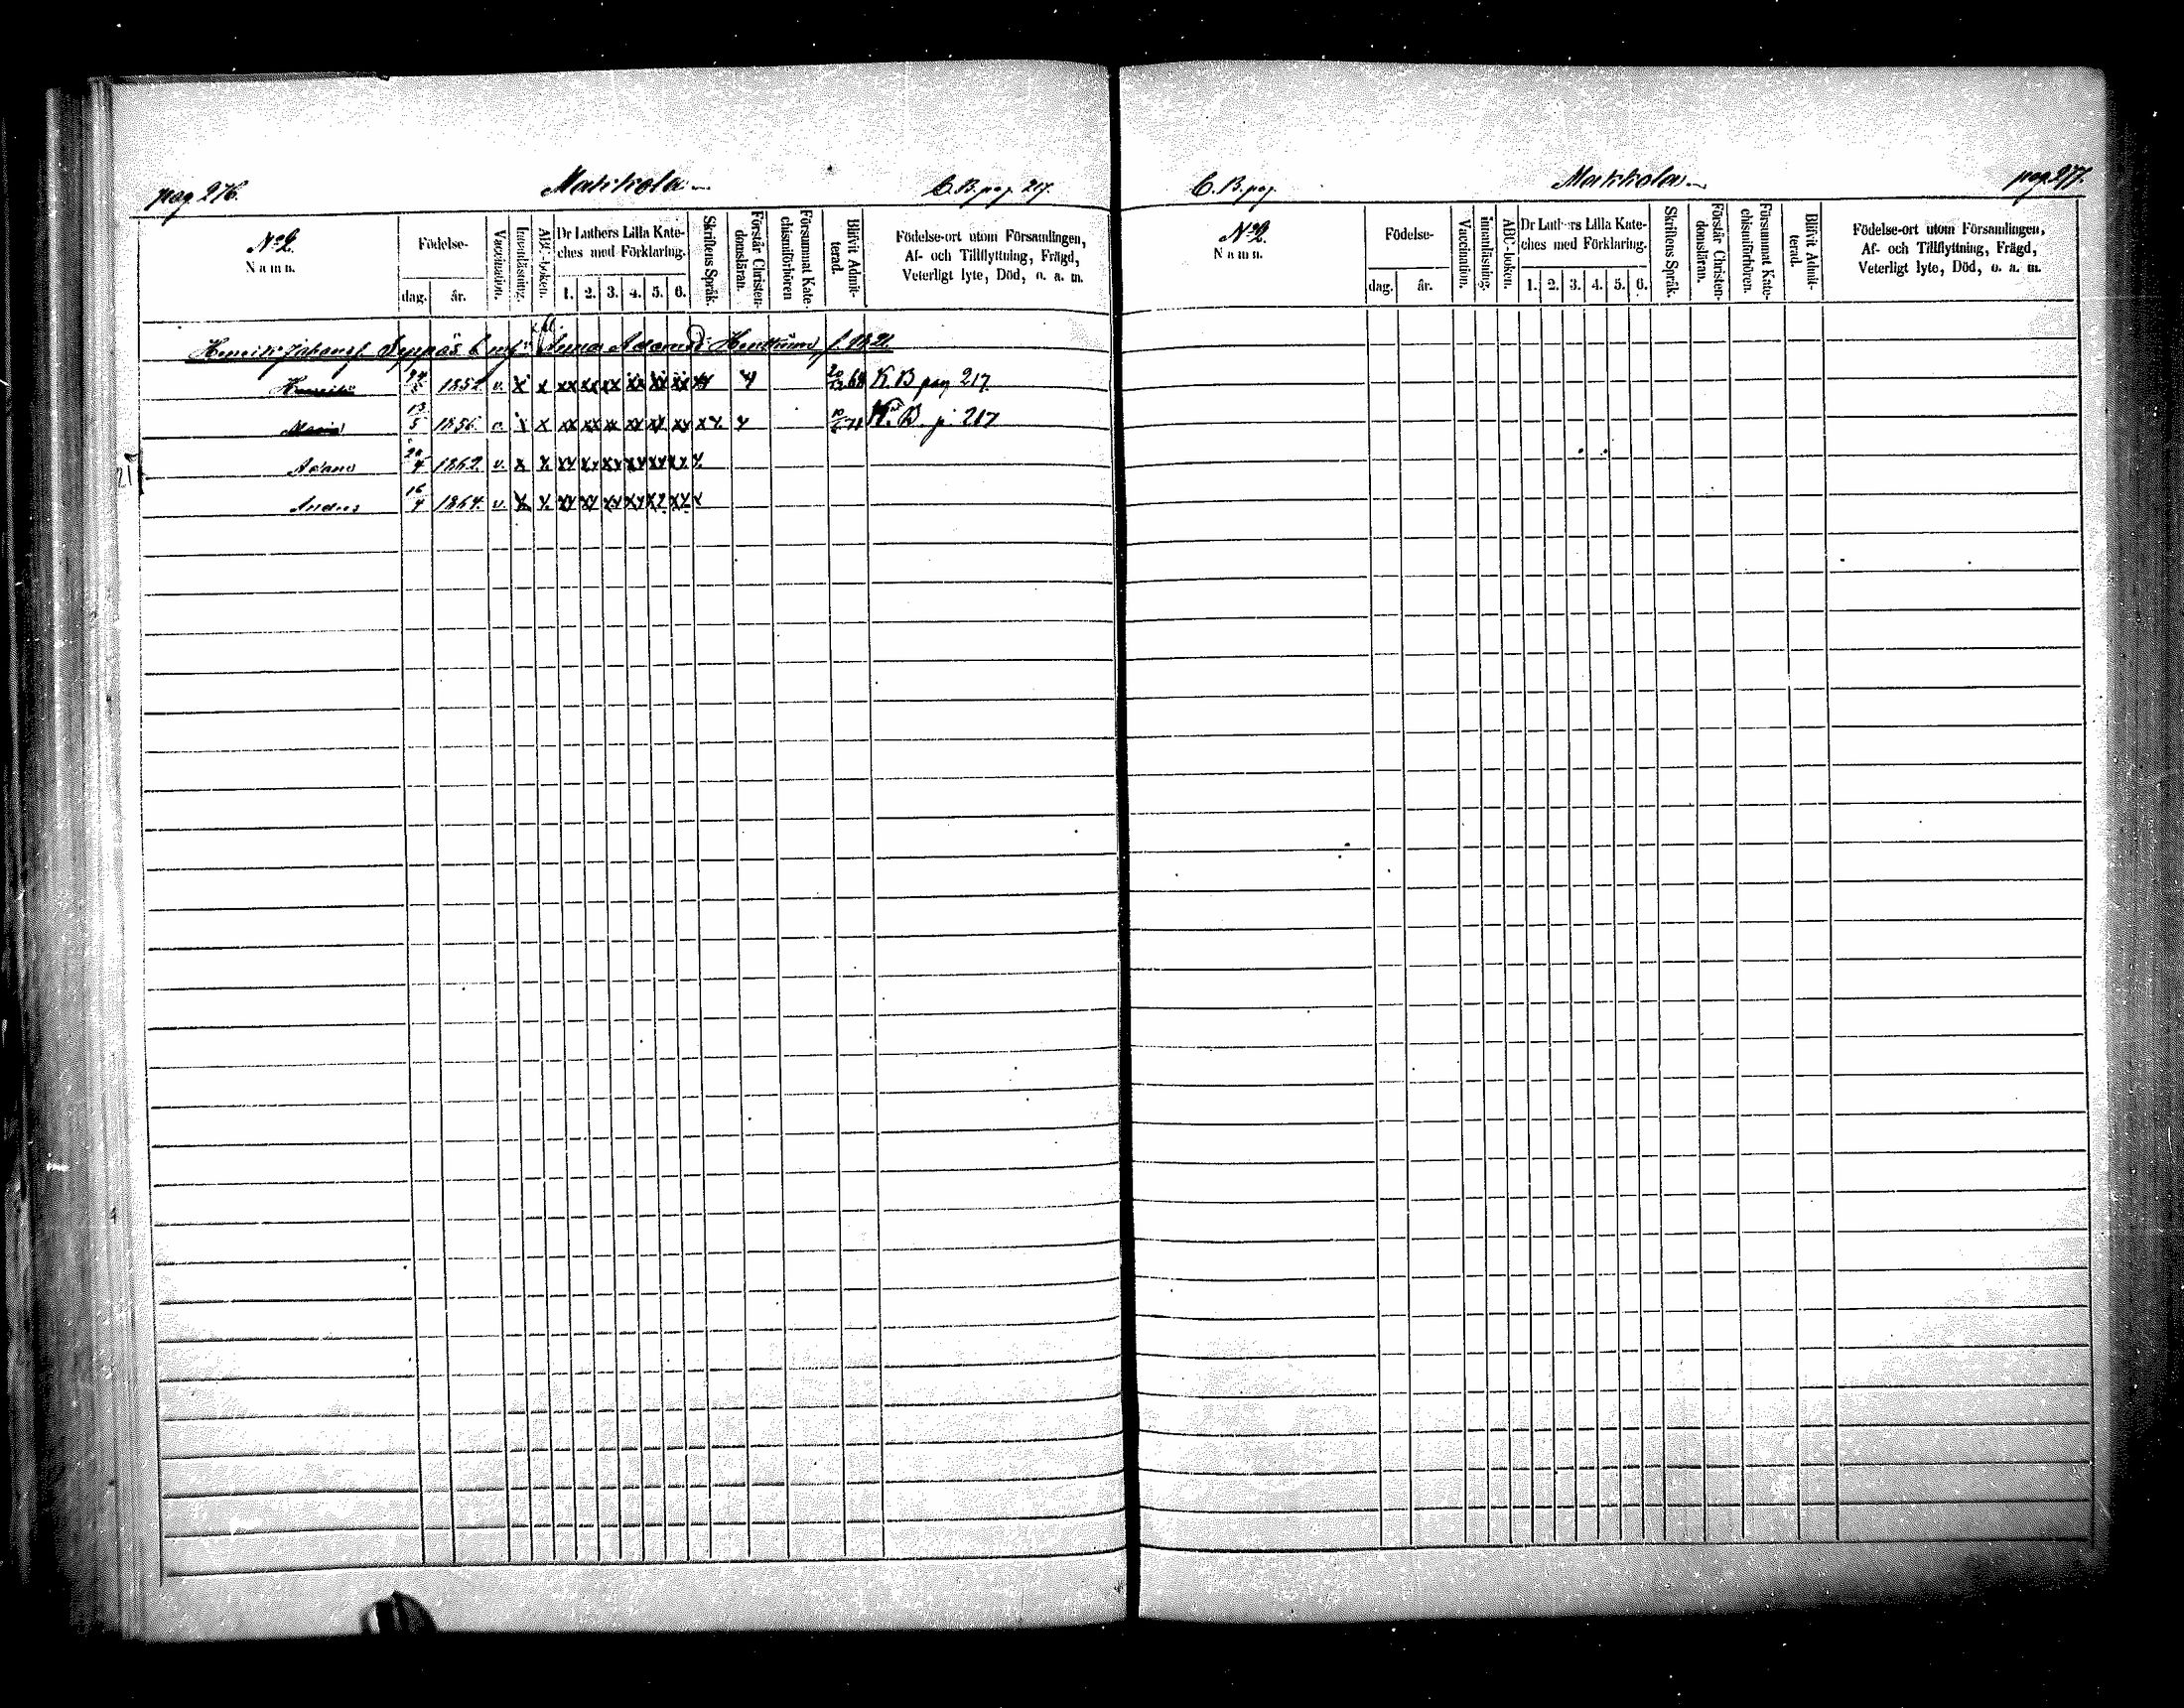 pag. 276. Makkola C. B. pag. 217.
No 2. Namn.
Födelse- dag. år.
Vaccination.
Innanläsning.
ABC-boken.
Dr Luthers Lilla Kate-
ches med Förklaring.
1. 2. 3. 4. 5. 6.
Skriftens Språk.
Förstår Christen-
domsläran.
Försummat Kate-
chismiförhören
Blifvit Admit-
terad.
Födelse-ort utom Församlingen,
Af- och Tillflyttning, Frägd,
Veterligt lyte, Död, o. a. m.
Henrik Johansf Seppäs Anna Adamsd: f. 1821
1852 v. x x xx xx xx xx xx xx 68 K. B pag 217
Maria 13/5 1856 x x xx xx xx xx xx xx K. B. p. 217
Adam 20/4 1862 v. x x xx xx xx xx xx xx x
Anders 16/4 1864 v. x x xx xx xx xx xx xx x
C. B. pag. Makkola pag. 277.
No 2. Namn.
Födelse- dag. år.
Vaccination.
Innanläsning.
ABC-boken.
Dr Luthers Lilla Kate-
ches med Förklaring.
1. 2. 3. 4. 5. 6.
Skriftens Språk.
Förstår Christen-
domsläran.
Försummat Kate-
chismiförhören.
Blifvit Admit-
terad.
Födelse-ort utom Församlingen,
Af- och Tillflyttning, Frägd,
Veterligt lyte, Död, o. a. m.